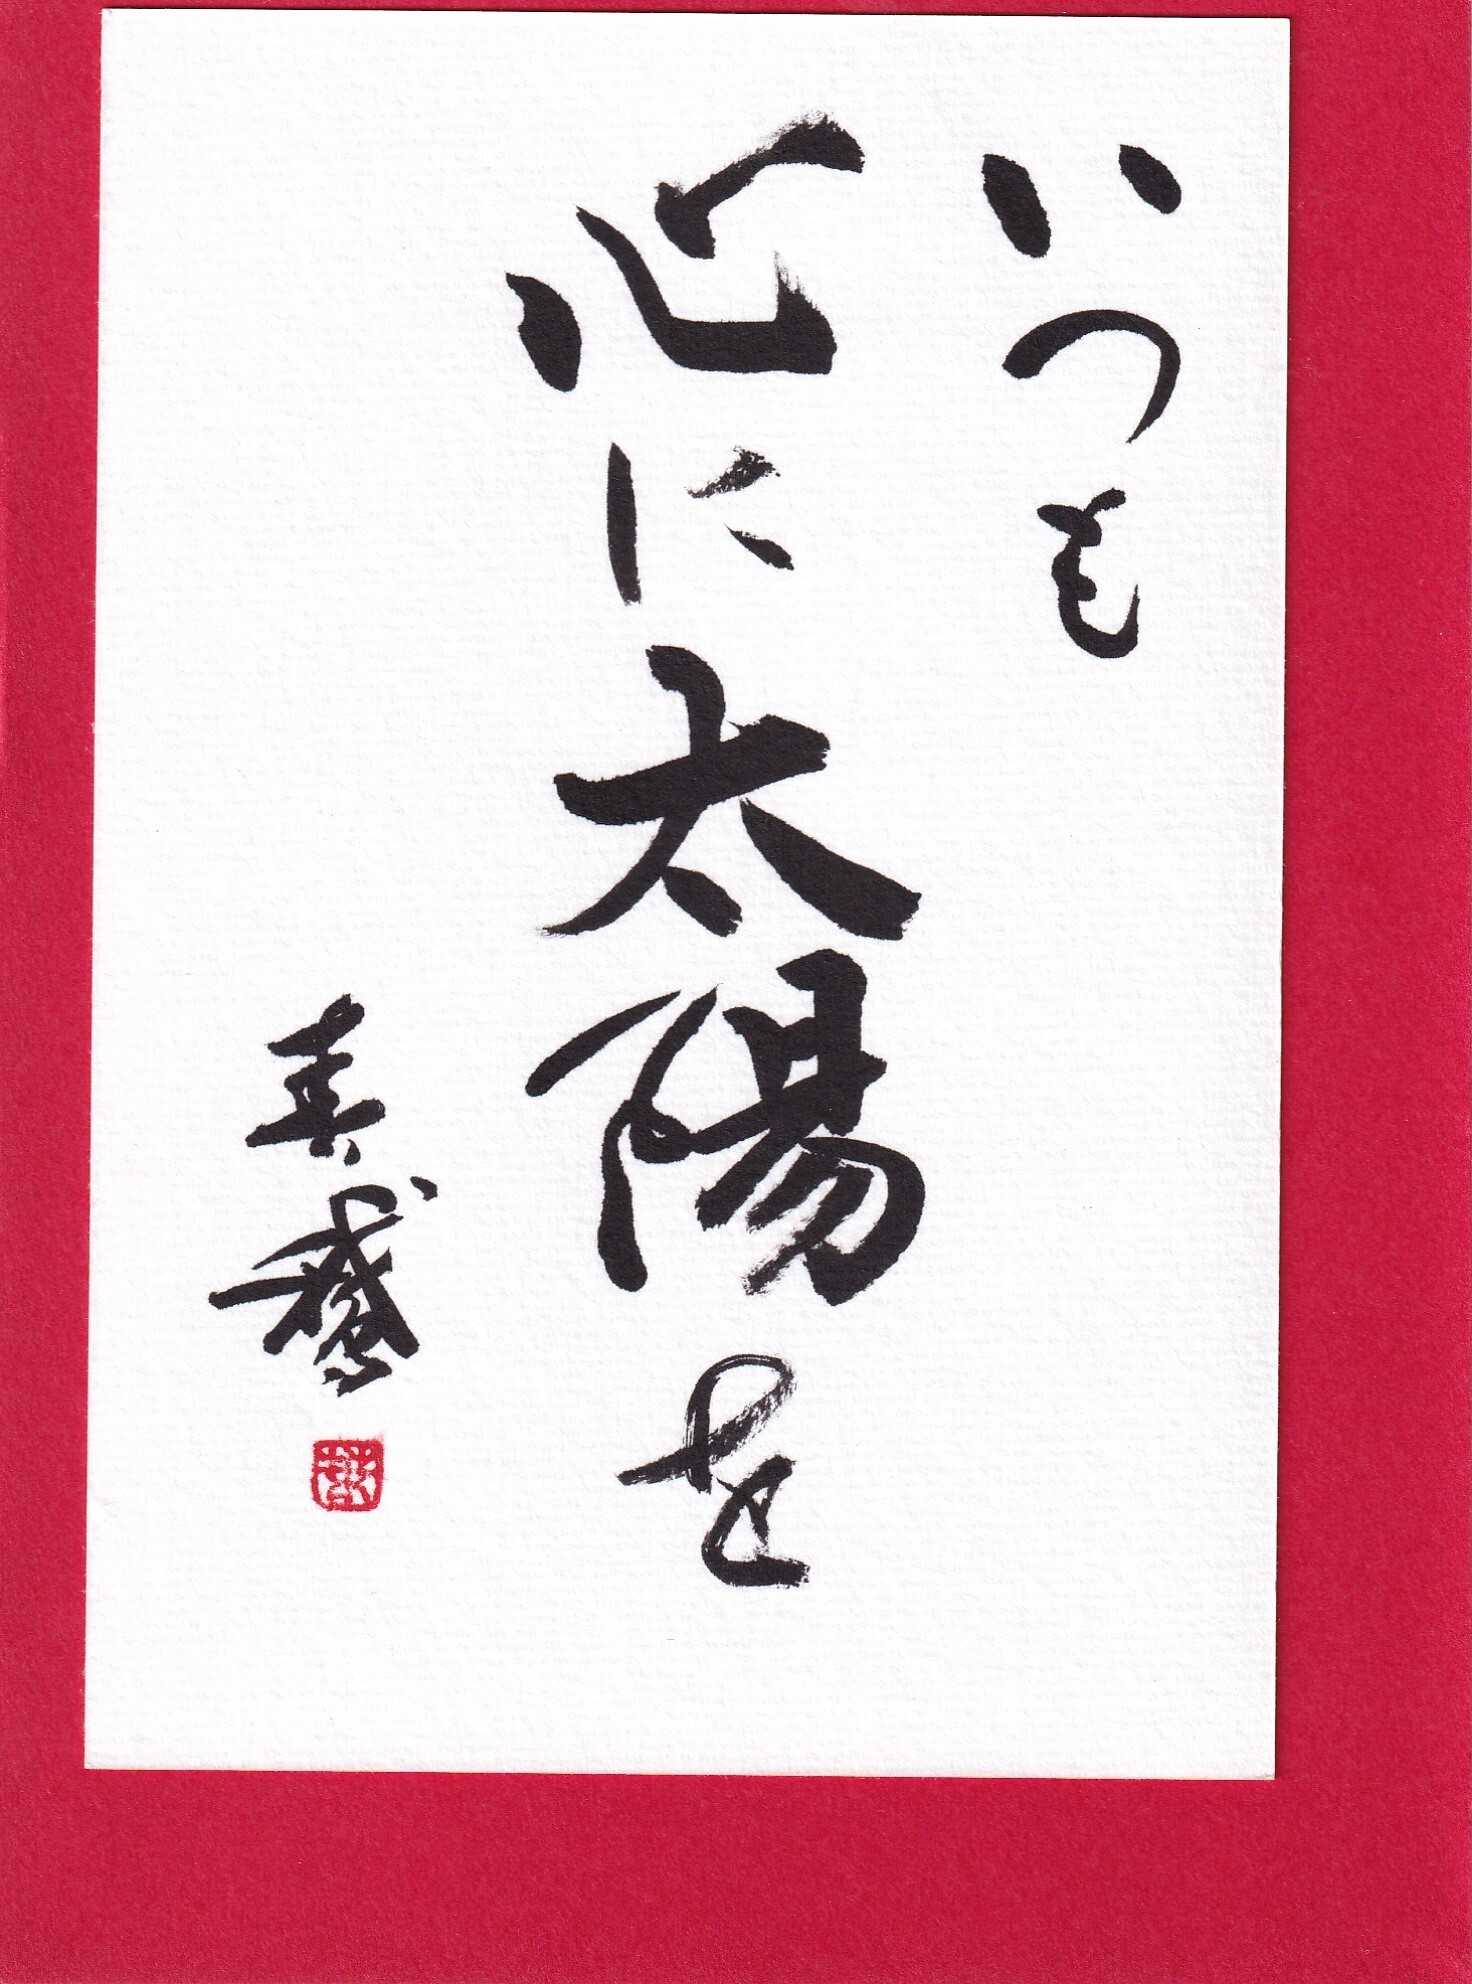 いつも
心に太陽を